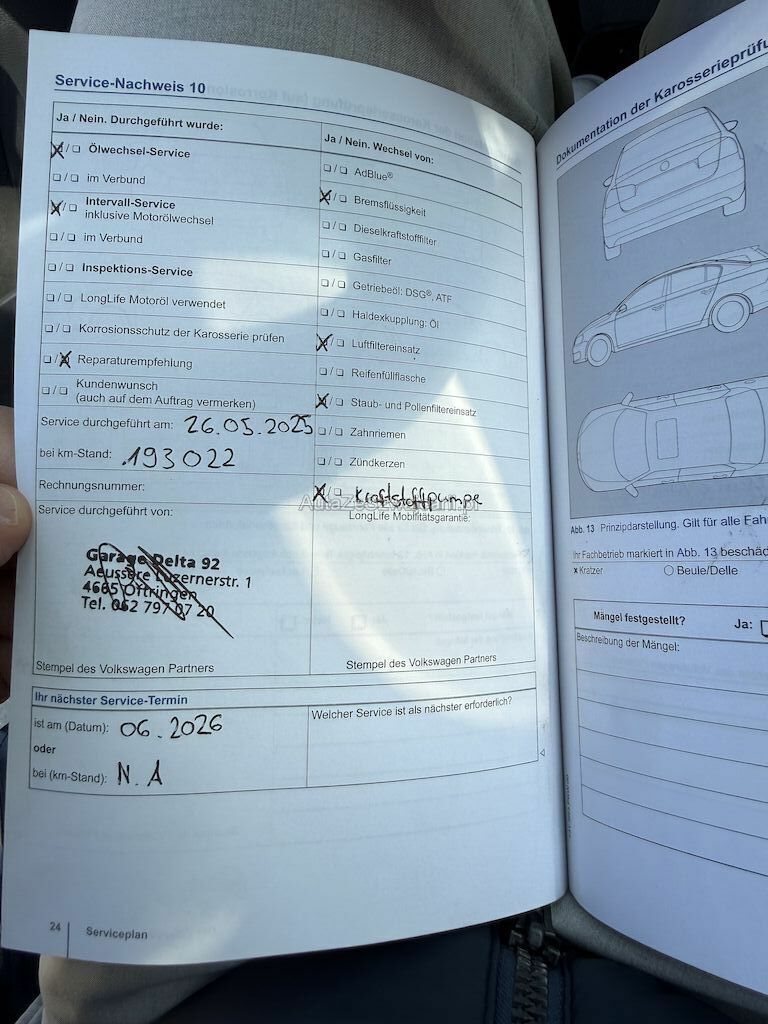 Service-Nachweis 10
Ja / Nein. Durchgeführt wurde:
Ölwechsel-Service
im Verbund
Intervall-Service
inklusive Motorölwechsel
im Verbund
Inspektions-Service
LongLife Motoröl verwendet
Korrosionsschutz der Karosserie prüfen
Reparaturempfehlung
Kundenwunsch
(auch auf dem Auftrag vermerken)
Service durchgeführt am: 26.05.2025
bei km-Stand: 193022
Rechnungsnummer:
Service durchgeführt von:
Garage Delta 92
Aeussere Luzernerstr. 1
4665 Oftringen
Tel. 062 797 07 20
Stempel des Volkswagen Partners
Ja / Nein. Wechsel von:
AdBlue®
Bremsflüssigkeit
Dieselkraftstofffilter
Gasfilter
Getriebeöl: DSG®, ATF
Haldexkupplung: Öl
Luftfiltereinsatz
Reifenfüllflasche
Staub- und Pollenfiltereinsatz
Zahnriemen
Zündkerzen
Kraftstoffpumpe
LongLife Mobilitätsgarantie:
Stempel des Volkswagen Partners
Ihr nächster Service-Termin
ist am (Datum): 06.2026
oder
bei (km-Stand): N.A
Welcher Service ist als nächster erforderlich?
24 Serviceplan
Dokumentation der Karosserieprüfu
Abb. 13 Prinzipdarstellung. Gilt für alle Fah
Ihr Fachbetrieb markiert in Abb. 13 beschäd
x Kratzer
Beule/Delle
Mängel festgestellt? Ja:
Beschreibung der Mängel: